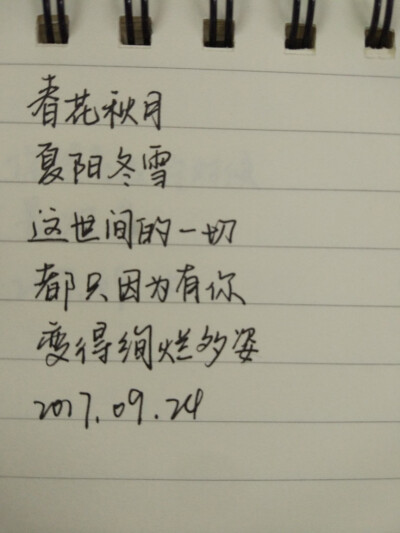 春花秋月
夏阳冬雪
这世间的一切
都只因为有你
变得绚烂多姿
2017.09.24